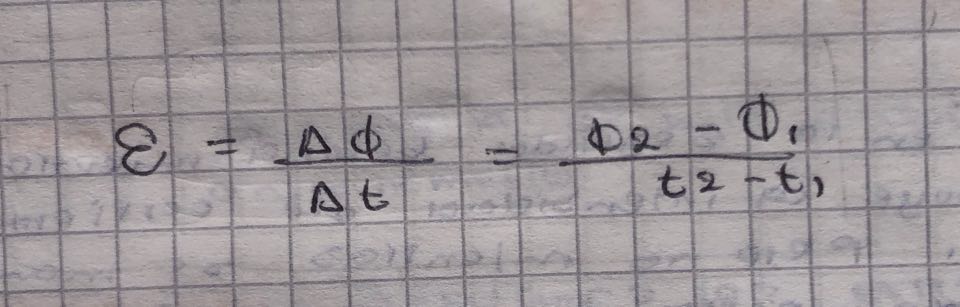 ε = ΔΦ / Δt = Φ2 - Φ1 / t2 - t1